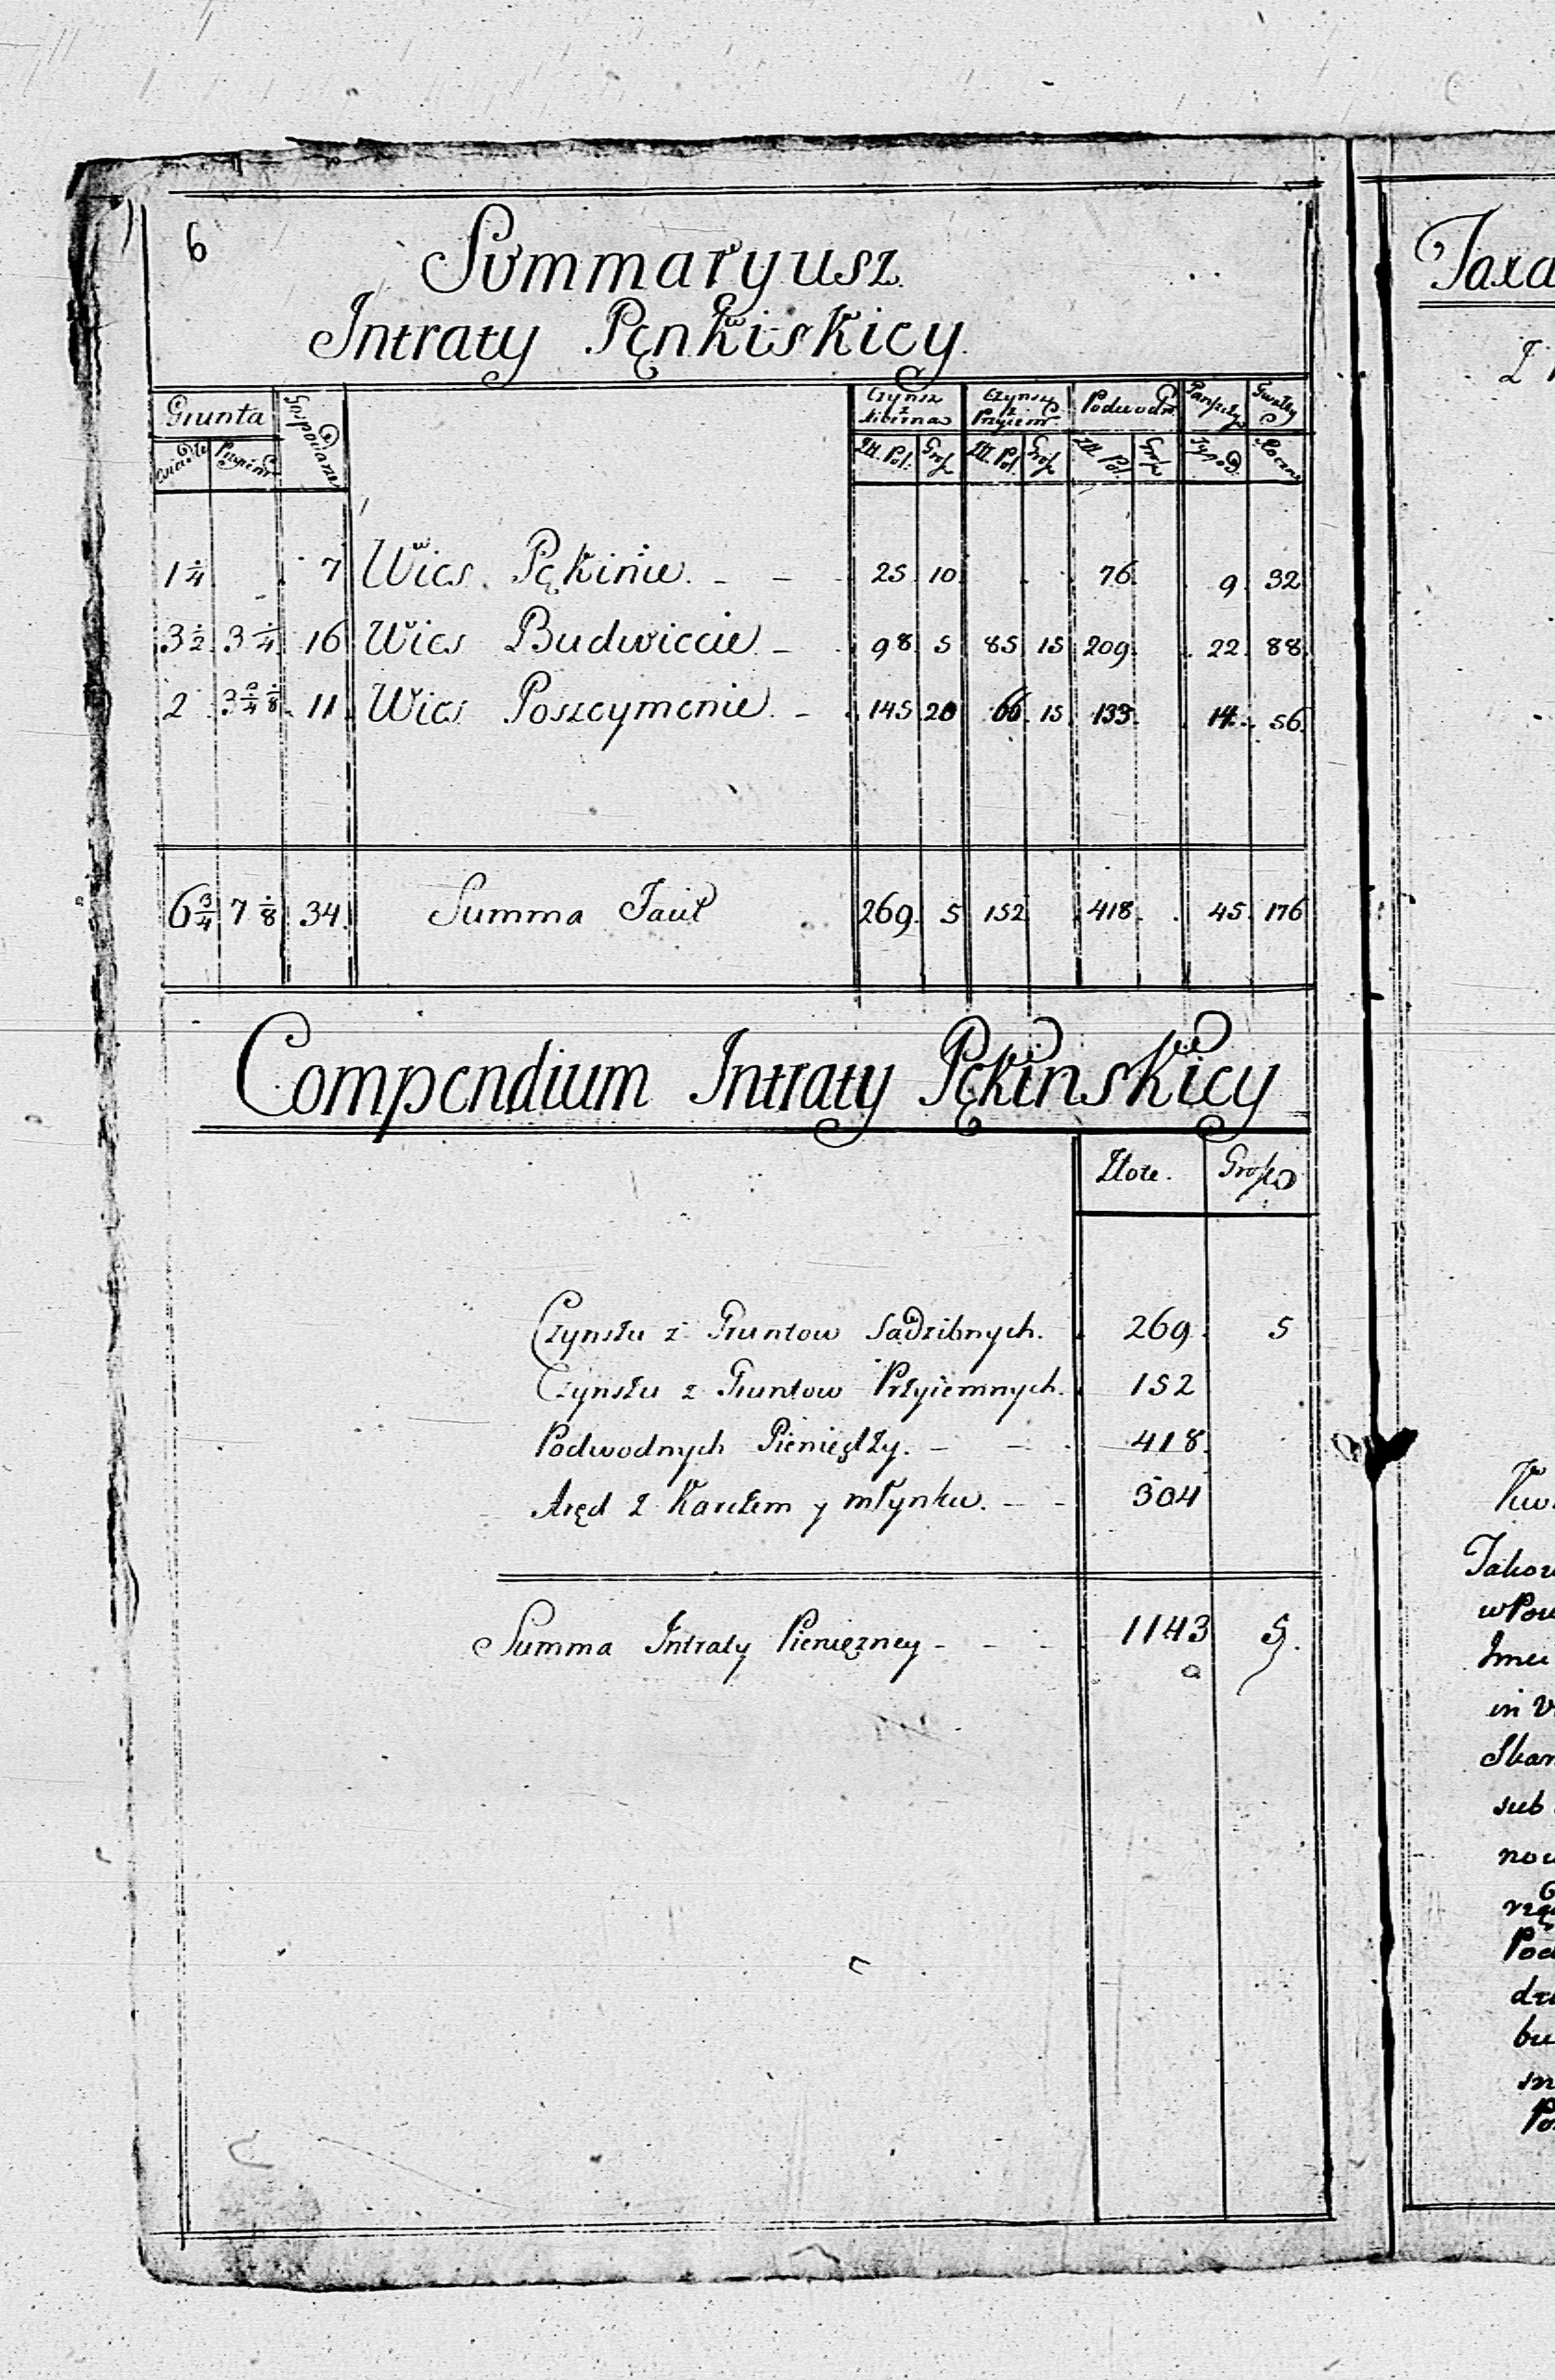 6
Summaryusz
Intraty Pęnkiskiey
Grunta Gospodarze Czynsz z Sibírna Czynsz z Przyiem: Podwod: Panszcz Gwałty
Przyiem Złł. Pol: Grosz Złł. Pol: Grosz Złł. Pol: Grosz Tygod: Roczne
1 1/4 7 Wies Pękinie 25 10 76 9 32
3 1/2 3 1/4 16 Wies Budwiecie 98 5 85 15 209 22 88
2 3 2/4 1/8 11 Wies Poszeymenie 145 20 66 15 133 14 56
6 3/4 7 1/8 34 Summa Facit 269 5 152 418 45 176
Compendium Intraty Pękinskiey
Złote. Grosze
Czynszu z Gruntow Sadzibnych. 269 5
Czynszu z Gruntow Przyiemnych. 152
Podwodnych Pieniędzy. 418
Aręd z Karczem y młynku. 304
Summa Intraty Pienięzney 1143 5
Taxa
Z
Jakow
w Pow
Imci
in V
Skar
sub
now
Pod
dzi
bu